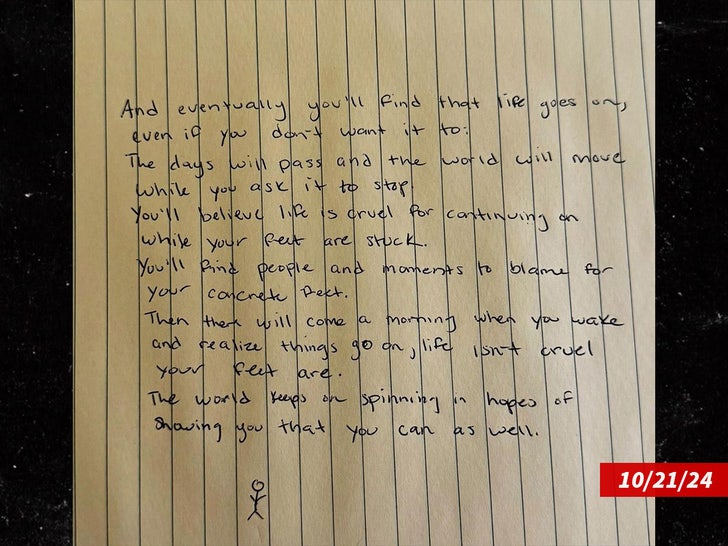 And eventually you'll find that life goes on,
even if you don't want it to.
The days will pass and the world will move
while you ask it to stop.
You'll believe life is cruel for continuing on
while your feet are stuck.
You'll find people and moments to blame for
your concrete feet.
Then there will come a morning when you wake
and realize things go on, life isn't cruel
your feet are.
The world keeps on spinning in hopes of
showing you that you can as well.
10/21/24